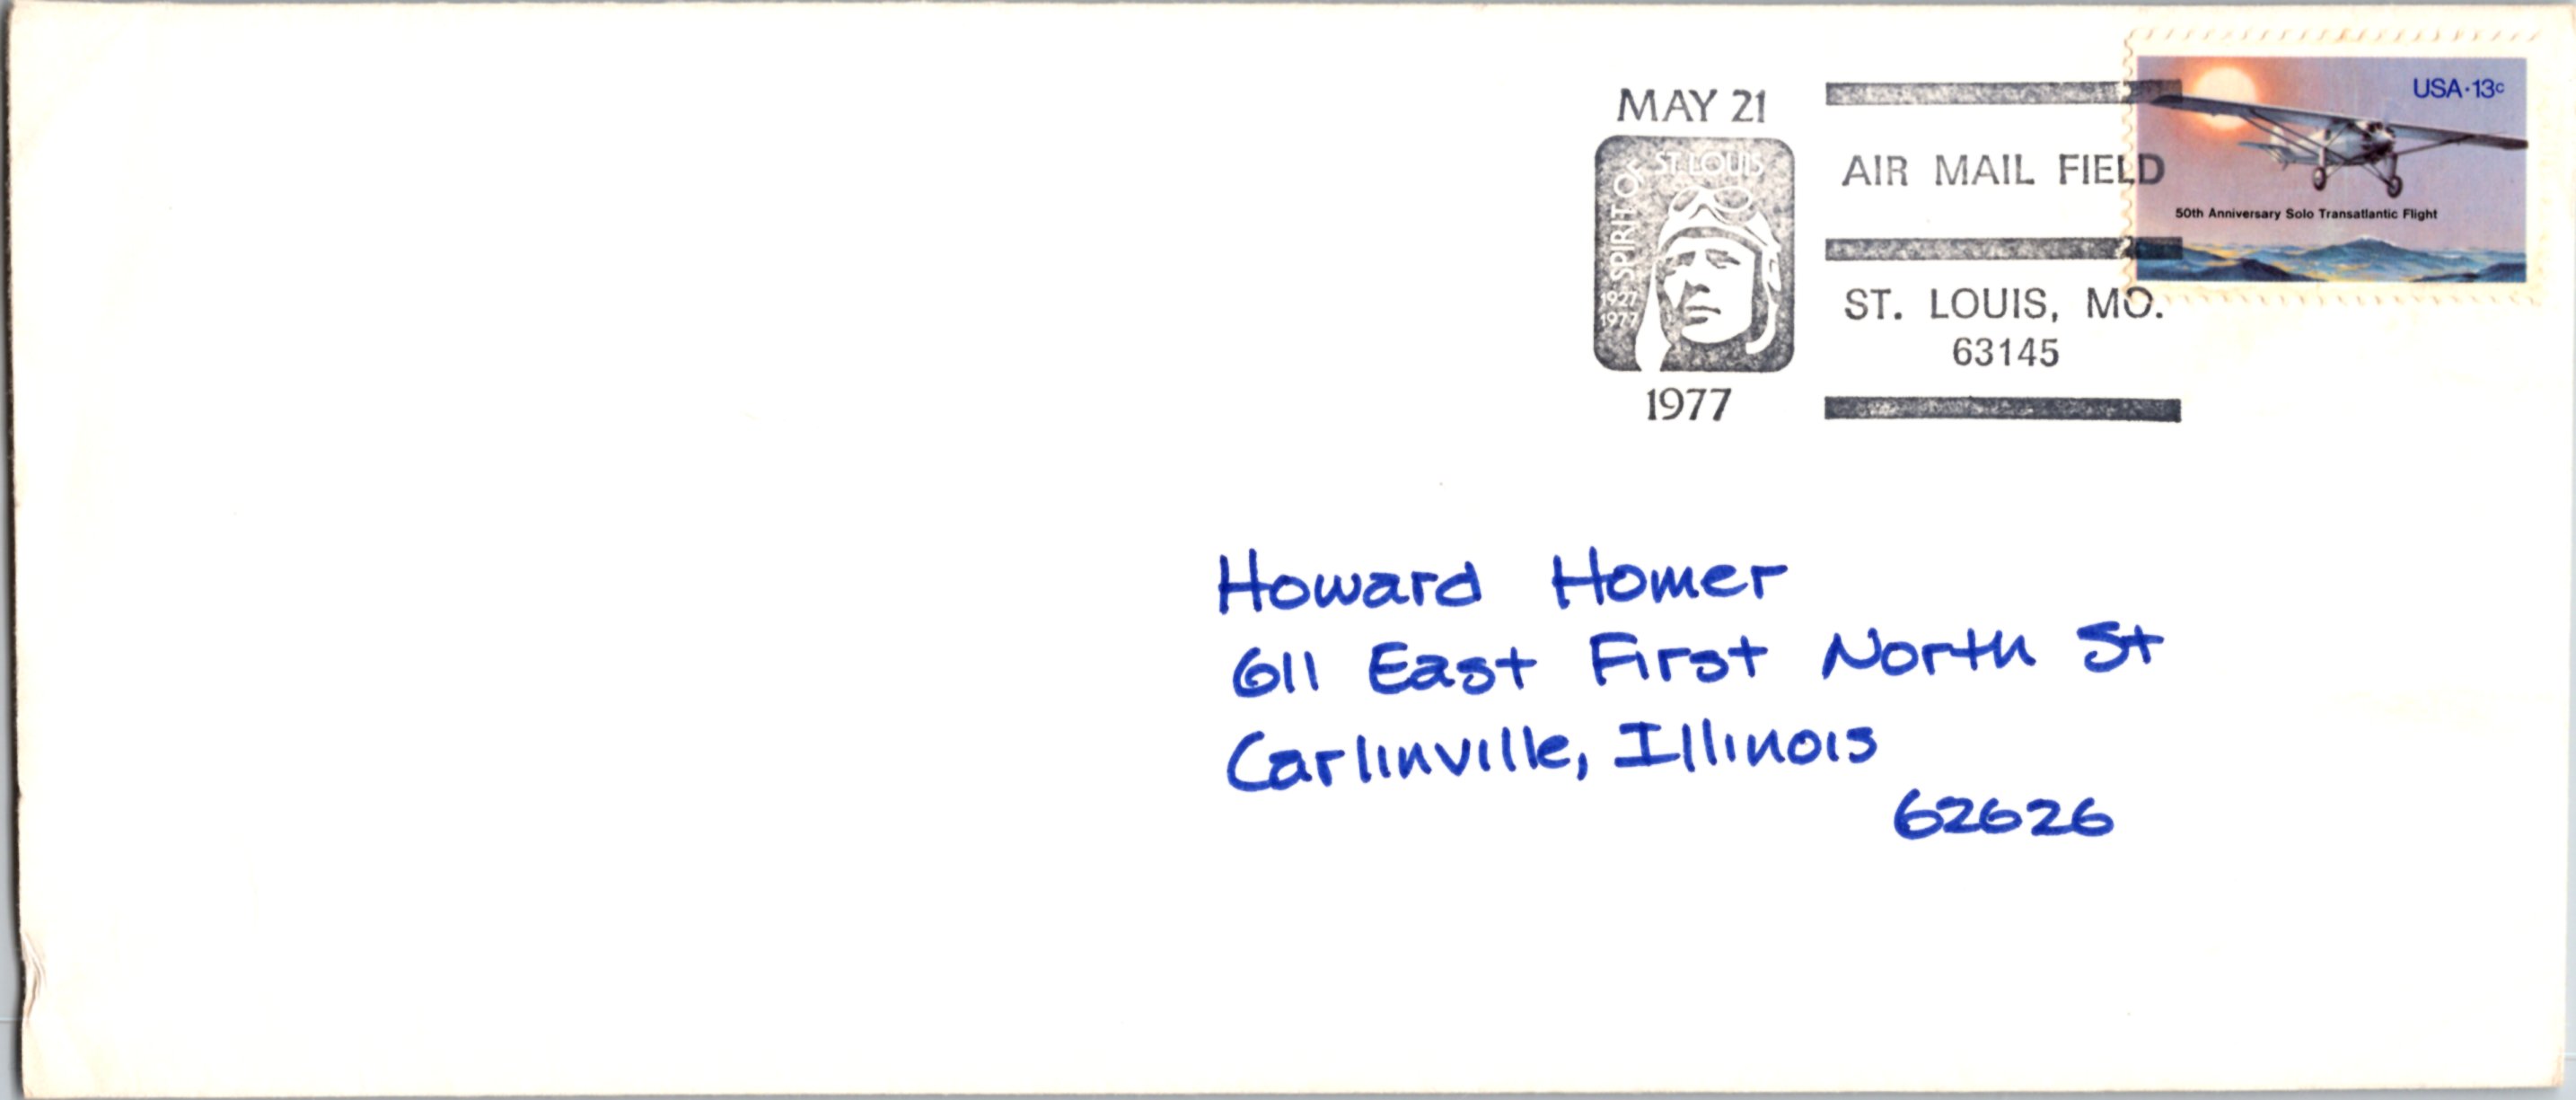 MAY 21
SPIRIT OF ST. LOUIS
1927
1977
1977
AIR MAIL FIELD
ST. LOUIS, MO.
63145
USA·13c
50th Anniversary Solo Transatlantic Flight
Howard Homer
611 East First North St
Carlinville, Illinois
62626